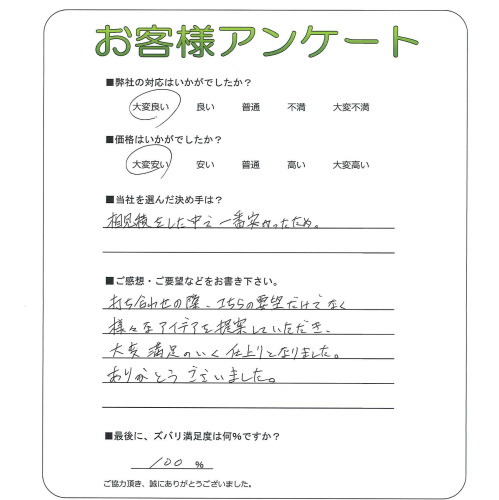 お客様アンケート
■弊社の対応はいかがでしたか？
大変良い 良い 普通 不満 大変不満
■価格はいかがでしたか？
大変安い 安い 普通 高い 大変高い
■当社を選んだ決め手は？
相見積をした中で一番安かったため。
■ご感想・ご要望などをお書き下さい。
打ち合わせの際、こちらの要望だけでなく
様々なアイデアを提案していただき、
大変満足のいく仕上りとなりました。
ありがとうございました。
■最後に、ズバリ満足度は何％ですか？
100 ％
ご協力頂き、誠にありがとうございました。